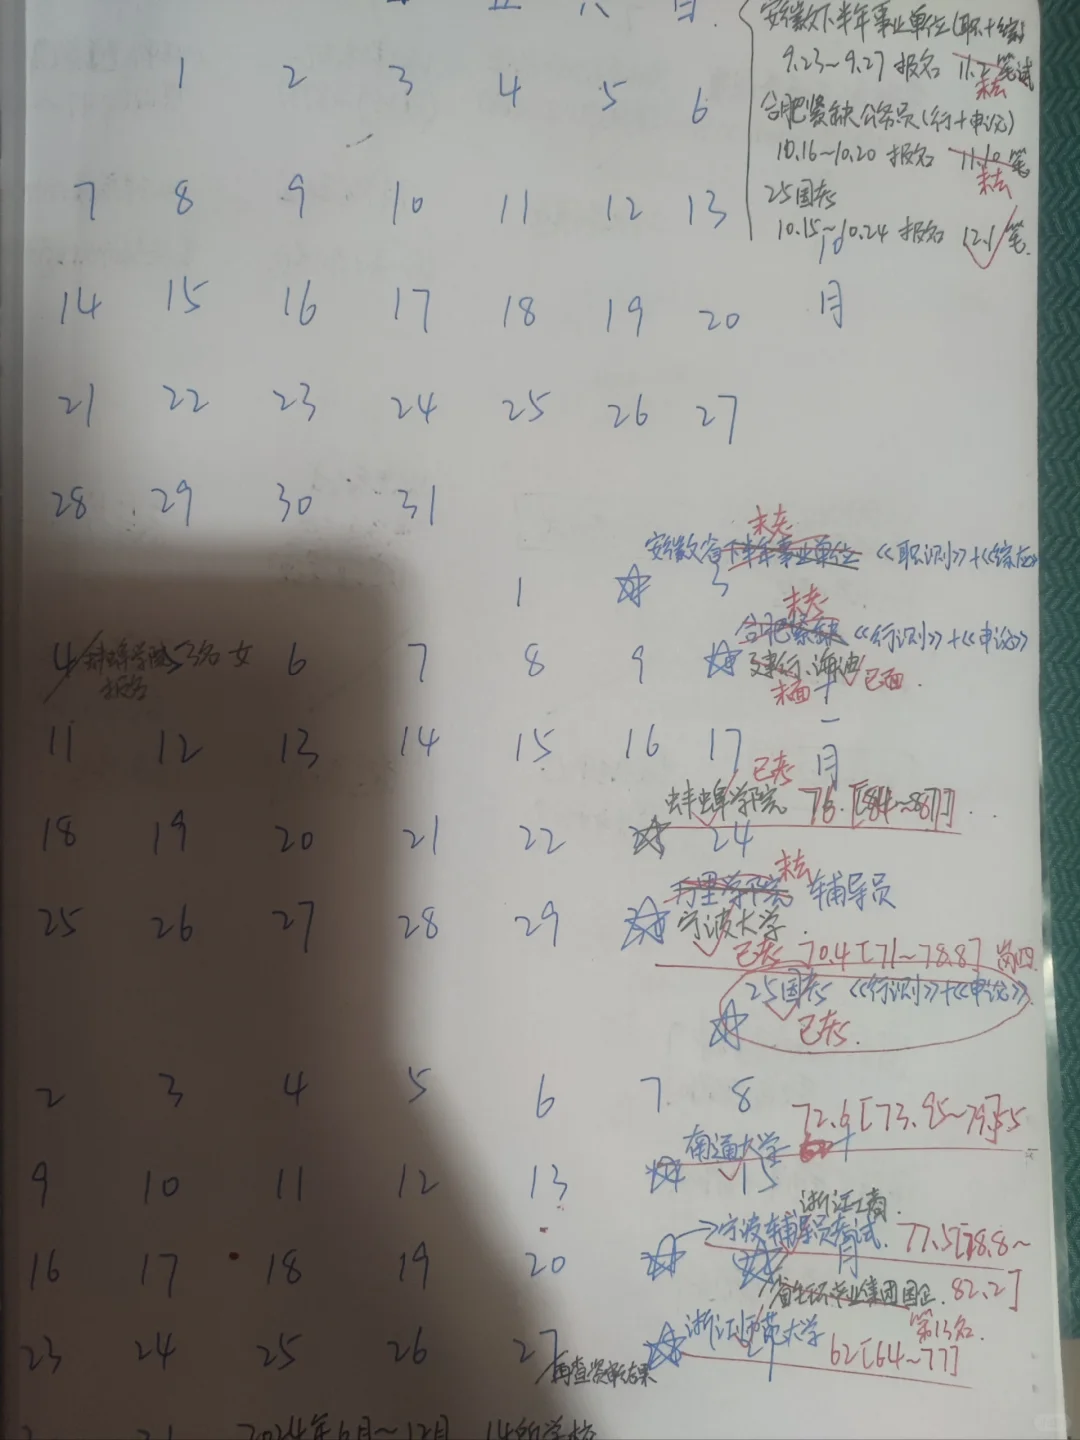 五 六 日
安徽下半年事业单位(职+综)
9.23~9.27 报名 11.2 笔试
未去
1 2 3 4 5 6
合肥紧缺公务员(行+申论)
10.16~10.20 报名 11.10 笔
未去
7 8 9 10 11 12 13
25国考
10.15~10.24 报名 12.1 笔.
10
月
14 15 16 17 18 19 20
21 22 23 24 25 26 27
28 29 30 31
未考
安徽省下半年事业单位 《职测》+《综应》
1 3
未考
合肥紧缺 《行测》+《申论》
4 5 6 7 8 9
蚌埠学院 3名女
报名
建行、海迪
未面 已面.
十一月
11 12 13 14 15 16 17
已考
蚌埠学院 76. [84~87]
18 19 20 21 22 24
未去
万里学院 辅导员
25 26 27 28 29
宁波大学.
已考 70.4 [71~78.8]
25国考 《行测》+《申论》
已考.
2 3 4 5 6 7 8
72.6 [73.95~79.55
南通大学 十
9 10 11 12 13 15
浙江工商.
宁波辅导员考试. 77.5[78.8~
82.2]
月
16 17 18 19 20
第13名.
浙江师范大学 62[64~77]
23 24 25 26 27
再查资审结果
2024年6月~12月 14所学校